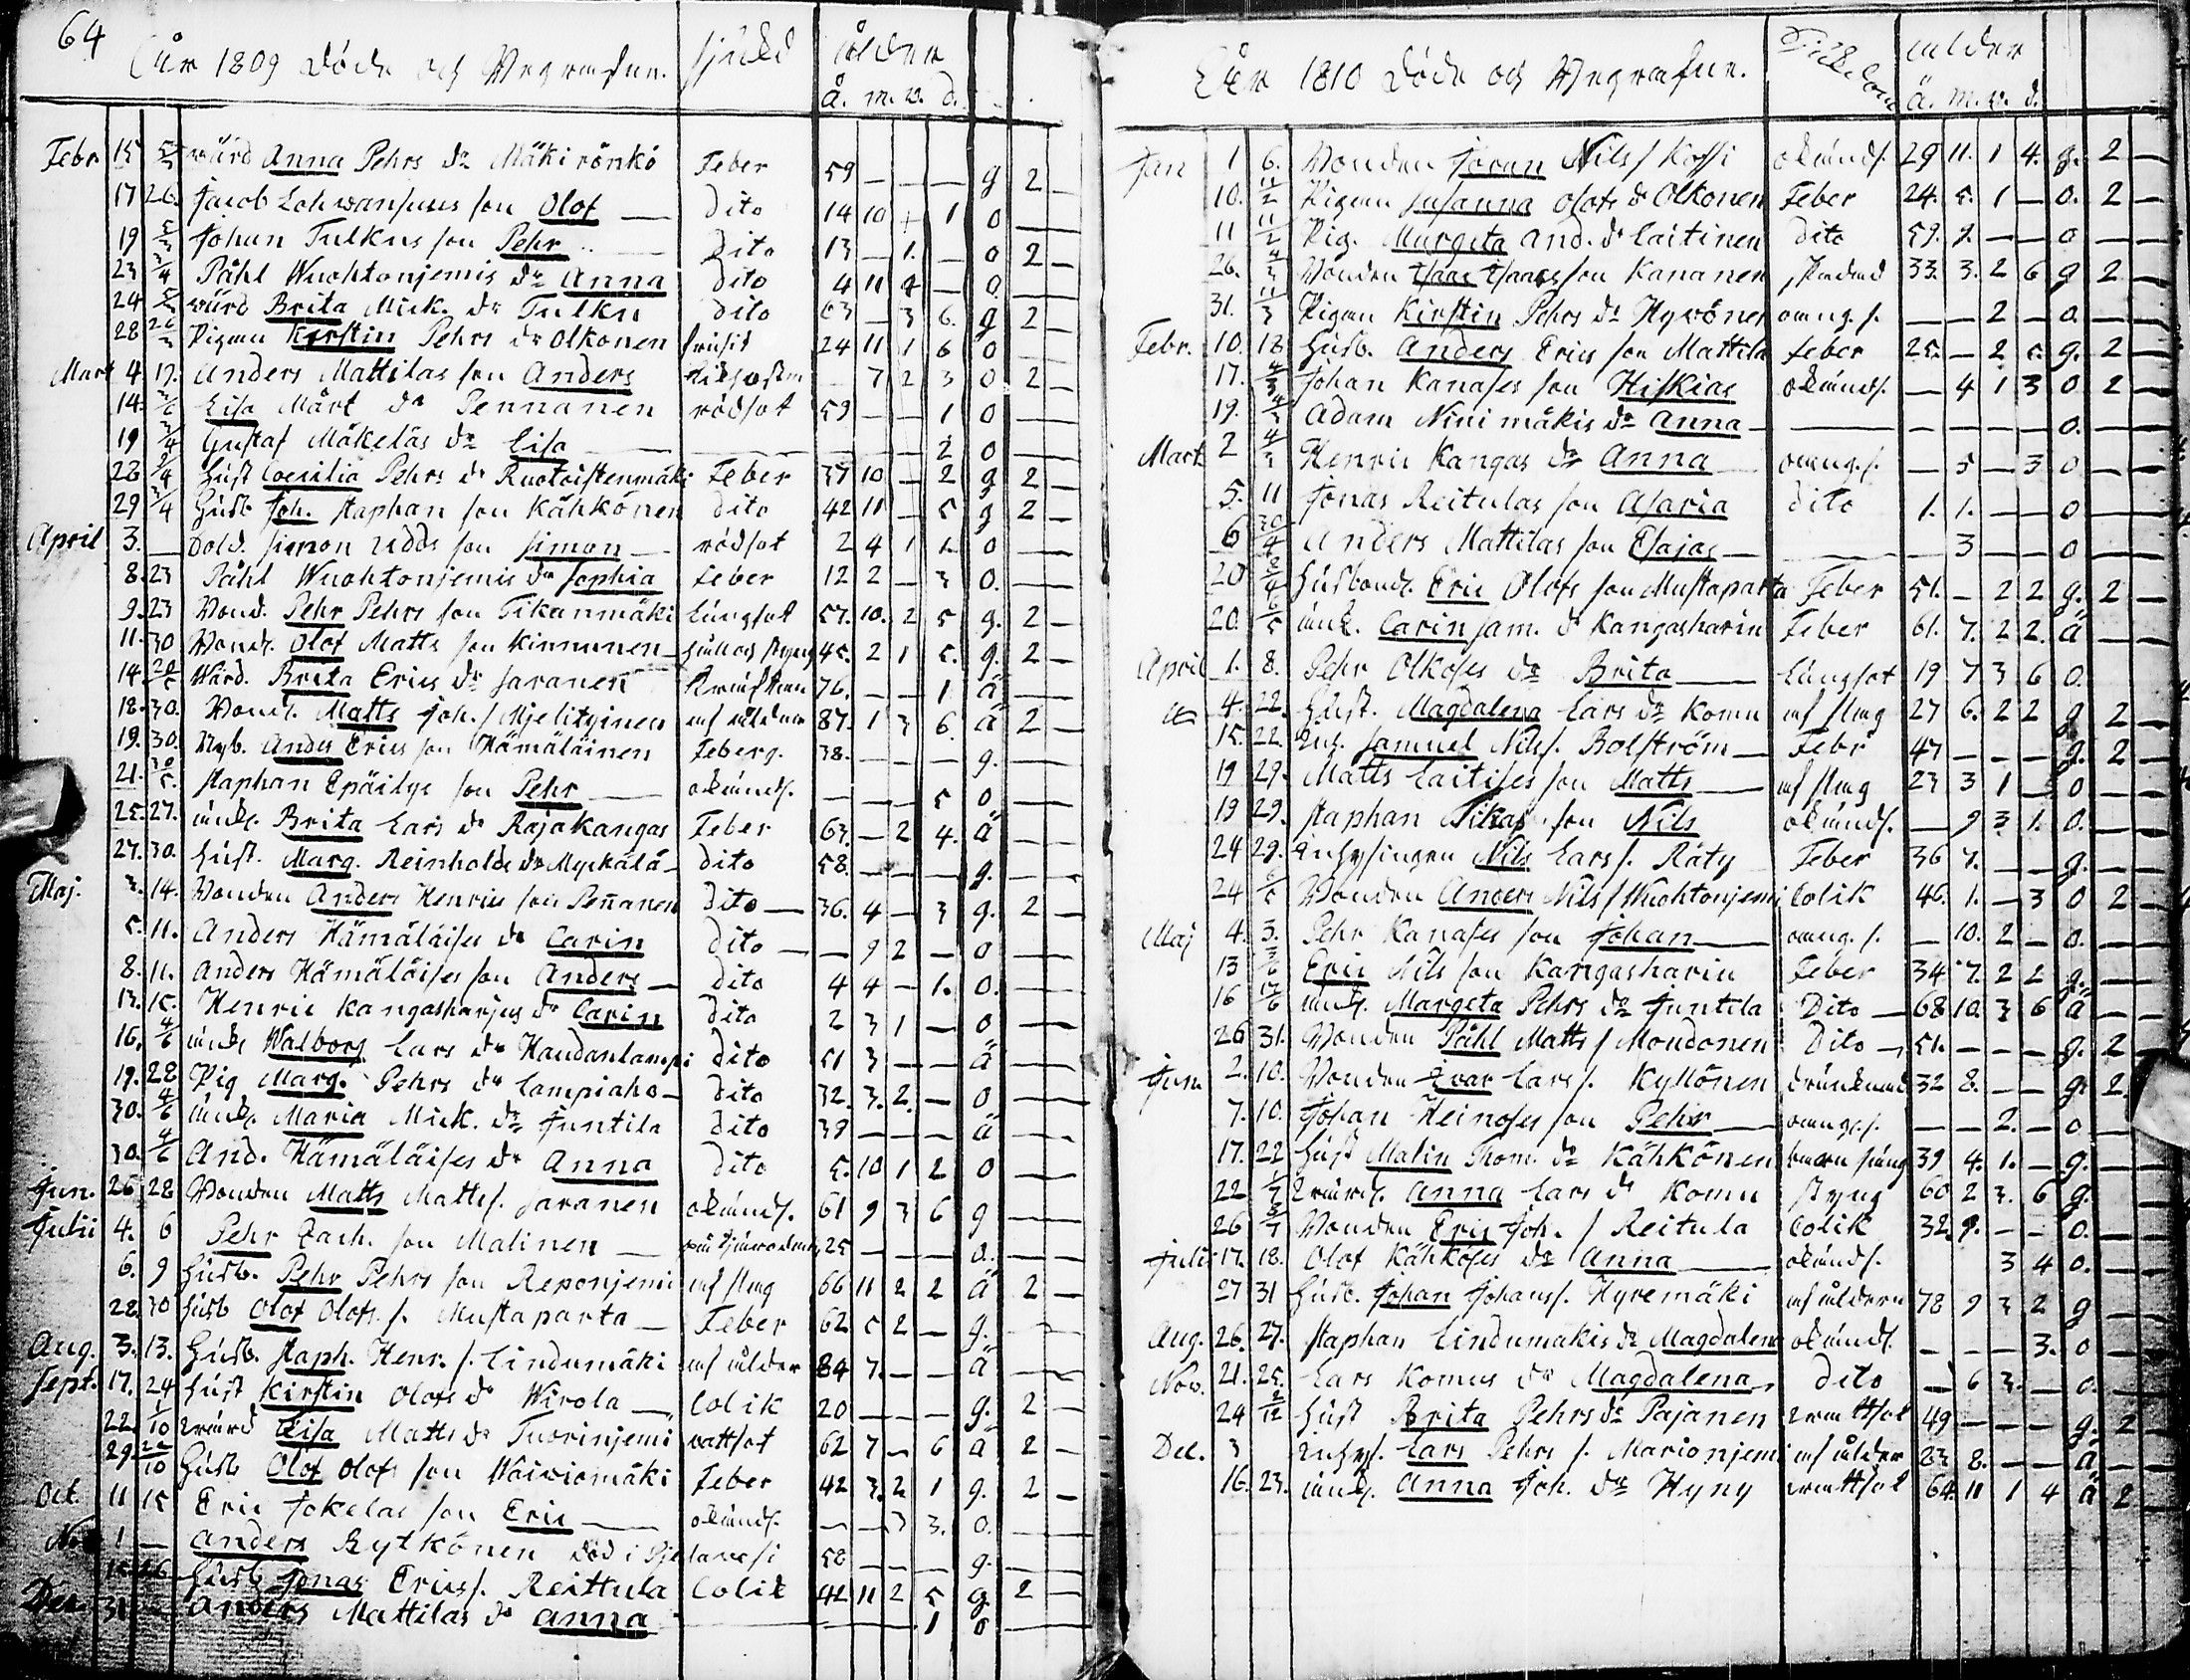 64
År 1809 Döde och Begrafne. sjukd ålder
å. m. v. d.
Febr 15 5/3 wärd Anna Pehrs dr Mäkirönkö Feber 59 — — — g 2 —
17 26. Jacob Lohwansuus son Olof — Dito 14 10 + 1 0 —
19 5/3 Johan Tulkus son Pehr — Dito 13 — 1. — 0 2 —
23 3/4 Påhl Wuohtonjemis dr Anna Dito 4 11 — 0 —
24 wärd Brita Mick. dr Tulku Dito 63 — 3 6. g 2 —
28 26/3 Pigan Kirstin Pehrs dr Olkonen 24 11 1 6 0 —
Mart 4 19. Anders Mattilas son Anders — 7 2 3 0 2 —
14. Lisa Mårt dr Pennanen rödsot 59 — — 1 0 —
19 3/4 Gustaf Mäkeläs dr Lisa — — — — 2 0 —
28 2/4 Hust Coecilia Pehrs dr Ruotoistenmäki Feber 37 10 — 2 g 2 —
29 3/4 Husb Joh. Staphan son Kähkönen Dito 42 11 — 5 g 2 —
April 3. — Sold. Simon Udds son Simon — rödsot 2 4 1 1. 0 —
8. 23 Påhl Wuohtonjemis dr Sophia Feber 12 2 — 3 0. —
9. 23 Bond. Pehr Pehrs son Tikanmäki Lungsot 57. 10. 2 5 g. 2 —
11. 30 Bond. Olof Matts son Kinnunen — håll och styng 45. 2 1 5. g. 2 —
14. 28/5 Wärd. Brita Erics dr Saranen 76. — — 1 ä —
18. 30. Bond. Matts Joh. s. Mjelityinen af ålder 87. 1 3 6. ä 2 —
19. 30. Nyb. Anders Erics son Hämäläinen Feberg. 38. — — — g. —
21. 30/5 Staphan Epäilys son Pehr — okänds. — — — 5 0 —
25. 27. änk. Brita Lars dr Rajakangas Feber 63. — 2 4. ä —
27. 30. Hust. Marg. Reinholds dr Myckälä — dito 58. — — — g. —
Maj. 3. 14. Bonden Anders Henrics son Pennanen Dito — 36. 4 — 3 g. 2 —
5. 11. Anders Hämäläises dr Carin Dito — — 9 2 — 0 —
8. 11. Anders Hämäläises son Anders — dito 4 4 — 1. 0. —
13. 15. Henric Kangasharjus dr Carin Dito 2 3 1 — 0 —
16. 4/6 änk. Walborg Lars dr Haudanlampi Dito 51 3 — — ä —
19. 28 Pig Marg. Pehrs dr Lampiaho — Dito 32. 3. 2. — 0 —
30. 4/6 änk. Maria Mick. dr Juntila Dito 39 — — — ä —
30. 4/6 And. Hämäläises dr Anna Dito 5. 10 1 2 0 —
Jun. 26 28 Bonden Matts Matts s. Saranen okänds. 61 9 3 6 g —
Julii 4. 6 Pehr Zach. son Malinen — 25 — — — 0. —
6. 9 Husb. Pehr Pehrs son Reponjemi af slag 66 11 2 2 ä 2 —
22. 30 Husb Olof Olofs s. Mustaparta — Feber 62 5 2 — g. —
Aug. 3. 13. Husb. Staph. Henr. s. Lindumäki af ålder 84 7. — — ä —
Sept. 17. 24 Hust Kirstin Olofs dr Wirola — Colik 20 — — — g. 2 —
22. 1/10 wärd Lisa Matts dr Tuorinjemi wattsot 62 7 — 6 ä 2 —
29 22/10 Husb Olof Olofs son Waiwiomäki Feber 42 3. 2 1 g. 2 —
Oct. 11 15 Eric Jokelas son Eric — okänds. — — 3 3. 0. —
Nov 1 — Anders Rytkönen död i 58 — — — g. —
Husb Jonas Erics s. Reittula Colik 42 11 2 5 g. 2 —
Dec. 31 Anders Mattilas dr Anna — 1 0 —
År 1810 Döde och Begrafne. Sjukdom ålder
å. m. v. d.
Jan 1 6. Bonden Jöran Nils s. Kossi okänds. 29 11. 1 4. g. 2 —
10. 11/2 Pigan Susanna Olofs dr Olkonen Feber 24. 5. 1 — 0. 2 —
11 11/2 Pig. Margeta And. dr Laitinen Dito 59. 9. — — 0 —
26. 4/3 Bonden Isaac Isaacs son Kananen 33. 3. 2 6 g 2
31. 11/3 Pigan Kirstin Pehrs dr Hyvönen — — 2 — 0. —
Febr. 10. 18 Husb. Anders Erics son Mattila feber 25. — 2 5. g. 2 —
17. 4/3 Johan Kanases son Hiskias okänds. — 4 1 3 0 2 —
19. 4/3 Adam Niinimäkis dr Anna — — — — — 0. —
Mart 2 4/3 Henric Kangas dr Anna — 5 — 3 0 —
5. 11 Jonas Reitulas son Asaria dito 1. 1. — — 0 —
6 30/4 Anders Mattilas son Esajas — — 3 — — 0 —
20 2/4 Husbond. Eric Olofs son Mustaparta Feber 51. — 2 2 g. 2 —
20. 6/5 änk. Carin Sam. dr Kangasharju Feber 61. 7. 2 2. ä —
April 1. 8. Pehr Olkoses dr Brita — Lungsot 19 7 3 6 0. —
4. 22. Hust. Magdalena Lars dr Komu af slag 27 6. 2 2 g 2 —
15. 22. Samuel Nils s. Bolström — Febr 47 — — — g. 2 —
19 29. Matts Laitises son Matts — af slag 23 3 1 — 0 —
19 29. Staphan Tikas son Nils okänds. — 9 3 1. 0. —
24 29. Inhysingen Nils Lars s. Räty Feber 36 7. — — g. —
24 6/5 Bonden Anders Nils s. Wuohtonjemi Colik 46. 1. — 3 0 2 —
Maj 4. 3. Pehr Kanases son Johan — — 10. 2 — 0. —
13 3/6 Eric Nils son Kangasharju Feber 34 7. 2 2 g. —
16 17/6 änk. Margeta Pehrs dr Juntila Dito — 68 10. 3 6 ä —
26 31. Bonden Påhl Matts s. Moudonen Dito — 51. — — — g. 2
Jun. 2. 10. Bonden Ivar Lars s. Kyllönen drunknad 32 8. — — g. 2.
7. 10. Johan Heinoses son Pehr — — — 2. — 0 —
17. 22 Hust Malin Thom. dr Kähkönen barnsäng 39 4. 1. — g. —
22 1/7 Anna Lars dr Komu styng 60 2 3. 6 g. —
26 8/7 Bonden Eric Joh. s. Reitula Colik 32. 9. — — 0. —
Julii 17. 18. Olof Kähköses dr Anna — okänds. 3 4 0. —
27 31 Husb. Johan Johans s. Hyremäki af åldern 78 9 3 2 g —
Aug. 26. 27. Staphan Lindumäkis dr Magdalena okänds. — — — 3. 0 —
Nov. 21. 25. Lars Komus dr Magdalena — dito — 6 3. — 0. —
24 2/12 Hust Brita Pehrs dr Pajanen wattsot 49 — — — g. 2
Dec. 3 Inhys. Lars Pehrs s. Marionjemi af ålder 83 8. — — ä —
16. 23. änk. Anna Joh. dr Hyny wattsot 64. 11 1 4 ä 2